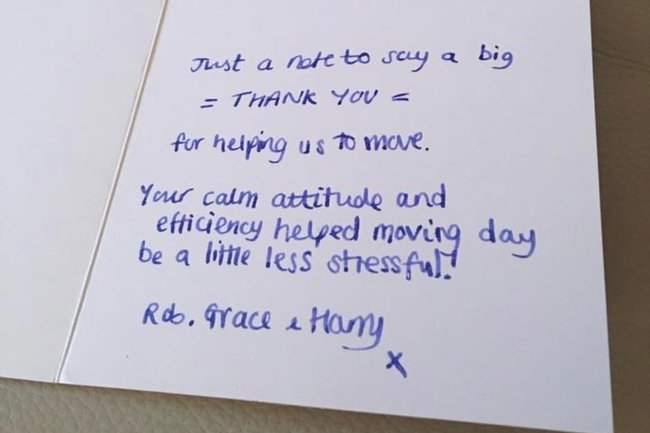 Just a note to say a big
= THANK YOU =
for helping us to move.
Your calm attitude and
efficiency helped moving day
be a little less stressful!
Rob, Grace & Harry
x